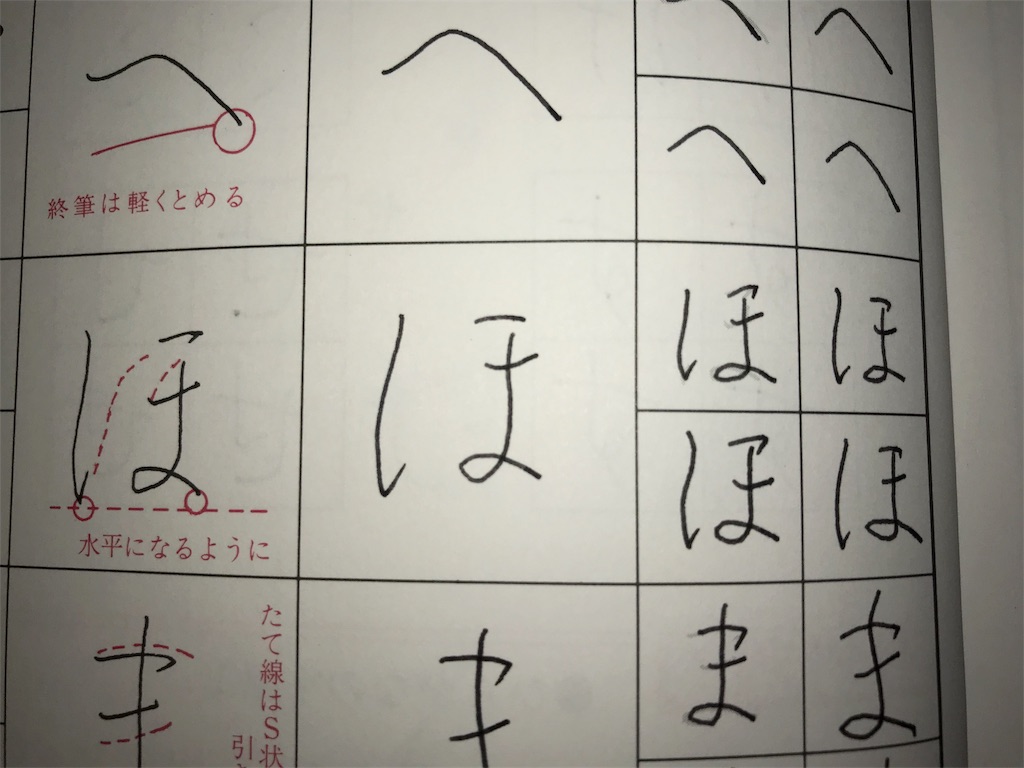 へ へ へ へ
へ へ
終筆は軽くとめる
ほ ほ ほ ほ
ほ ほ
水平になるように
ま ま ま
たて線はS状
引